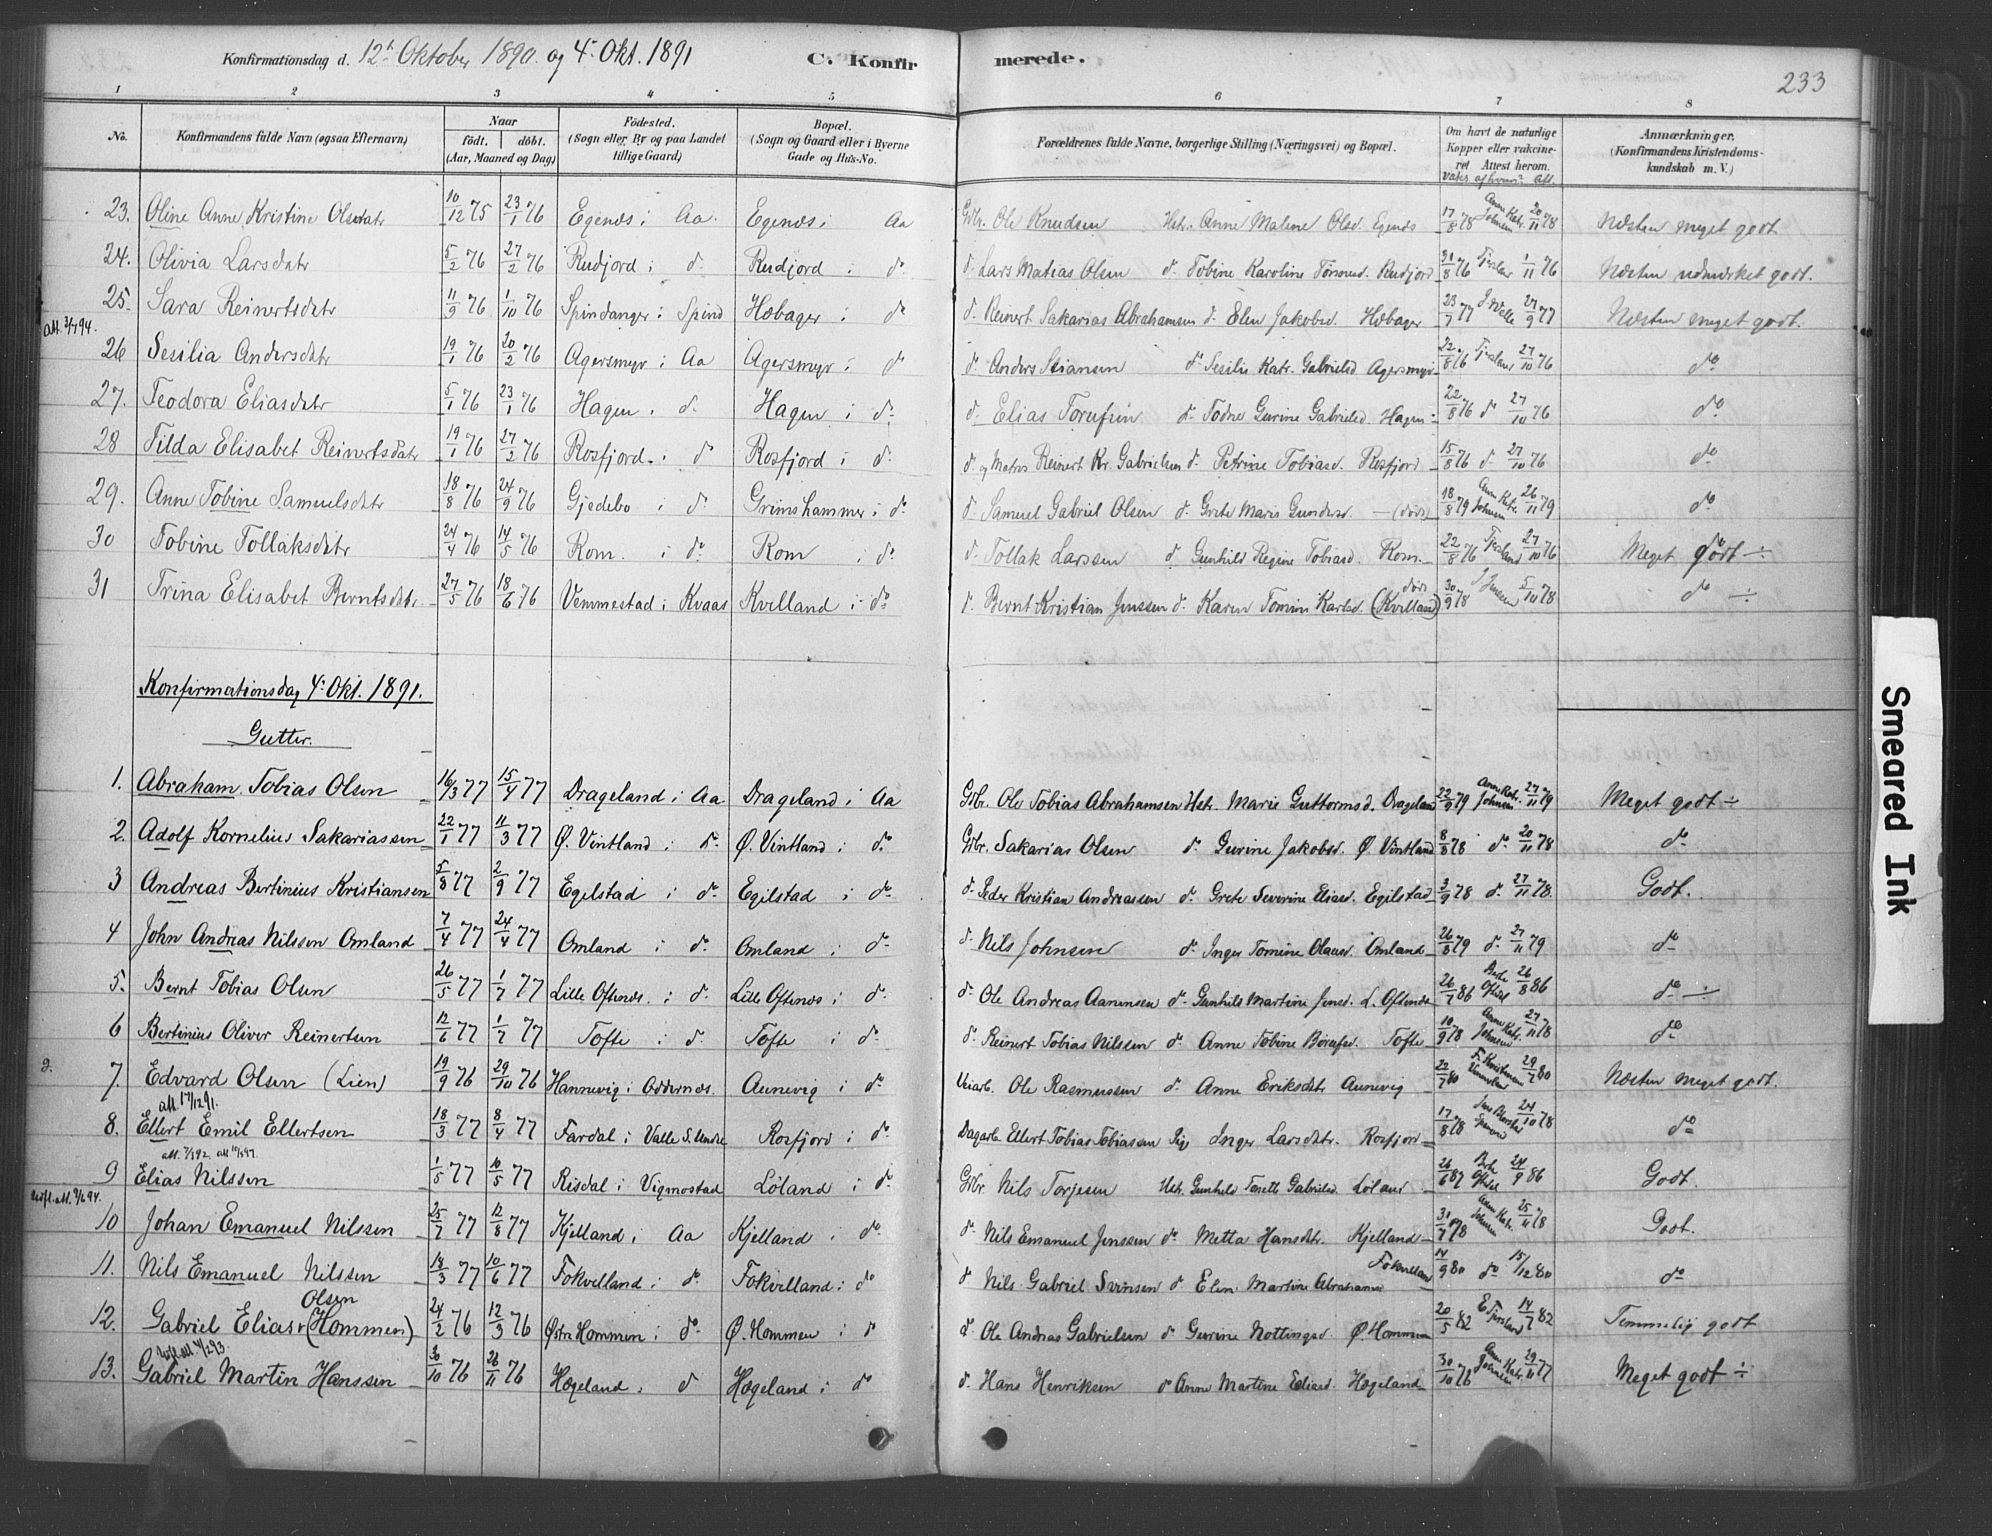 Konfirmationsdag d. 12te Oktober 1890. og 4de Okt. 1891 C. Konfirmerede. 233
1 2 3 4 5 6 7 8
No. Konfirmandens fulde Navn (ogsaa Efternavn) Naar født. døbt. (Aar, Maaned og Dag) Fødested. (Sogn eller By og paa Landet tillige Gaard) Bopæl. (Sogn og Gaard eller i Byerne Gade og Hus-No. Forældrenes fulde Navne, borgerlige Stilling (Næringsvei) og Bopæl. Om havt de naturlige Kopper eller vakcineret Attest herom. Anmærkninger. (Konfirmandens Kristendomskundskab m. V.)
vaks af hvem? Att.
23. Oline Anne Kristine Olsdatr 10/12 75 23/1 76 Egenæs i Aa. Egenæs i Aa Gbr. Ole Knudsen Hstr. Anne Malene Olsd. Egenæs 17/8 78 Anne Katr. Johnsen 20/11 78 Næsten meget godt
24. Olivia Larsdatr 5/2 76 27/2 76 Rudjord i do Rudjord i do do Lars Matias Olsen do Tobine Karoline Rudjord 31/8 76 1/11 76 Næsten udmærket godt.
25. Sara Reinertsdatr 11/9 76 1/10 76 Spindanger i Spind Hæbager i do do Reinert Sakarias Abrahamsen do Elen Jakobsd. Hæbager 23/7 77 27/9 77 Næsten meget godt.
att. 3/7 94.
26 Sesilia Andersdatr 19/1 76 20/2 76 Agersmyr i Aa Agersmyr i do do Anders Stiansen do Sesilie Katr. Gabrielsd Agersmyr 22/8 76 27/10 76 do
27. Teodora Eliasdatr 5/1 76 23/1 76 Hagen i do Hagen i do do Elias do Todne Gurine Gabrielsd. Hagen 22/8 76 do 27/10 76 do
28 Tilda Elisabet Reinertsdatr 19/1 76 27/2 76 Rosfjord i do Rosfjord i do do og Matros Reinert Kr. Gabrielsen do Petrine Tobiasd. Rosfjord 15/8 76 do 27/10 76 do
29. Anne Tobine Samuelsdatr 18/8 76 24/9 76 Gjedebo i do Grimshammer i do do Samuel Gabriel Olsen do Grete Maris Gundersd. (død) 18/8 79 Anne Katr. Johnsen 26/11 79 do
30 Tobine Tollaksdatr 24/4 76 14/5 76 Rom i do Rom i do do Tollak Larssen do Gunhild Regine Tobiasd. Rom. 22/8 76 27/10 76 Meget godt ÷
31 Trina Elisabet Berntsdatr. 27/5 76 18/6 76 Vemmestad i Kvaas Kvilland i do do Bernt Kristian Jenssen do Karen Tomine Karlsd. død (Kvilland) 30/9 78 J Jenssen 5/10 78 do ÷
Konfirmationsdag 4de Okt. 1891.
Gutter.
1. Abraham Tobias Olsen 16/3 77 15/4 77 Drageland i Aa Drageland i Aa Gbr. Ole Tobias Abrahamsen Hstr. Marie Guttormsd. Drageland 22/9 79 Anne Katr. Johnsen 27/11 79 Meget godt ÷
2. Adolf Kornelius Sakariassen 22/1 77 11/3 77 Ø. Vintland i do Ø. Vintland i do Gbr. Sakarias Olsen do Gurine Jakobsd. Ø. Vintland 8/8 78 do 20/11 78 do
3 Andreas Bertinius Kristiansen 5/8 77 2/9 77 Egelstad i do Egilstad i do do Peder Kristian Andreassen do Grete Severine Eliasd. Egilstad 3/9 78 do 27/11 78. Godt.
4 John Andreas Nilssen Omland 7/4 77 24/4 77 Omland i do Omland i do do Nils Johnsen do Inger Tomine Olausd. Omland 26/8 79 do 27/11 79 do
5. Bernt Tobias Olsen 26/5 77 1/7 77 Lille Oftenæs. i do Lille Oftenæs i do do Ole Andreas Aanensen do Gunhild Martine Jensd. L. Oftenæs 26/7 86 26/8 86 do ÷
6 Bertinius Oliver Reinertsen 12/6 77 1/7 77 Tofte i do Tofte i do do Reinert Tobias Nilssen do Anne Tobine Tofte 10/9 78 Anne Katr. Johnsen 27/11 78 do
7. Edvard Olsen (Lien) 19/9 76 29/10 76 Hannevig i Oddernæs. Aunevig i do Veiarb. Ole Rasmussen do Anne Eriksdatr Aunevig 22/7 80 29/7 80 Næsten meget godt.
att. 17/12 91.
8. Ellert Emil Ellertsen 18/3 77 8/4 77 Fardal i Valle S. Undre Rosfjord i do Dagarb. Ellert Tobias Tobiassen Pig Inger Larsdatr. Rosfjord 17/8 78 24/10 78 do
9 Elias Nilssen 1/5 77 10/5 77 Risdal i Vigmostad Løland i do Gbr. Nils Torjesen Hstr. Gunhild Gabrielsd. Løland 26/6 87 24/9 86 Godt.
10 Johan Emanuel Nilssen 25/7 77 12/8 77 Kjelland i Aa Kjelland i do do Nils Emanuel Jenssen do Metta Hansdtr. Kjelland 31/7 78 Anne Katr. Johnsen 25/11 78 Godt.
11. Nils Emanuel Nilssen 14/3 77 10/6 77 Fokvilland i do Fokvilland i do do Nils Gabriel Svinsen do Elen Martine Abrahamsd Fokvilland 14/9 80 do 15/12 80 do
12. Gabriel Elias Olsen (Hommen) 24/2 76 12/3 76 Østre Hommen i do Ø. Hommen i do do Ole Andreas Gabrielsen do Gurine Nottingsd. Ø Hommen 20/5 82 14/7 82 Temmelig godt
13. Gabriel Martin Hanssen 30/10 76 26/11 76 Hægeland i do Hægeland i do do Hans Henriksen do Anne Martine Hægeland 30/10 76 Anne Katr. Johnsen 29/11 77 Meget godt ÷
Smeared Ink